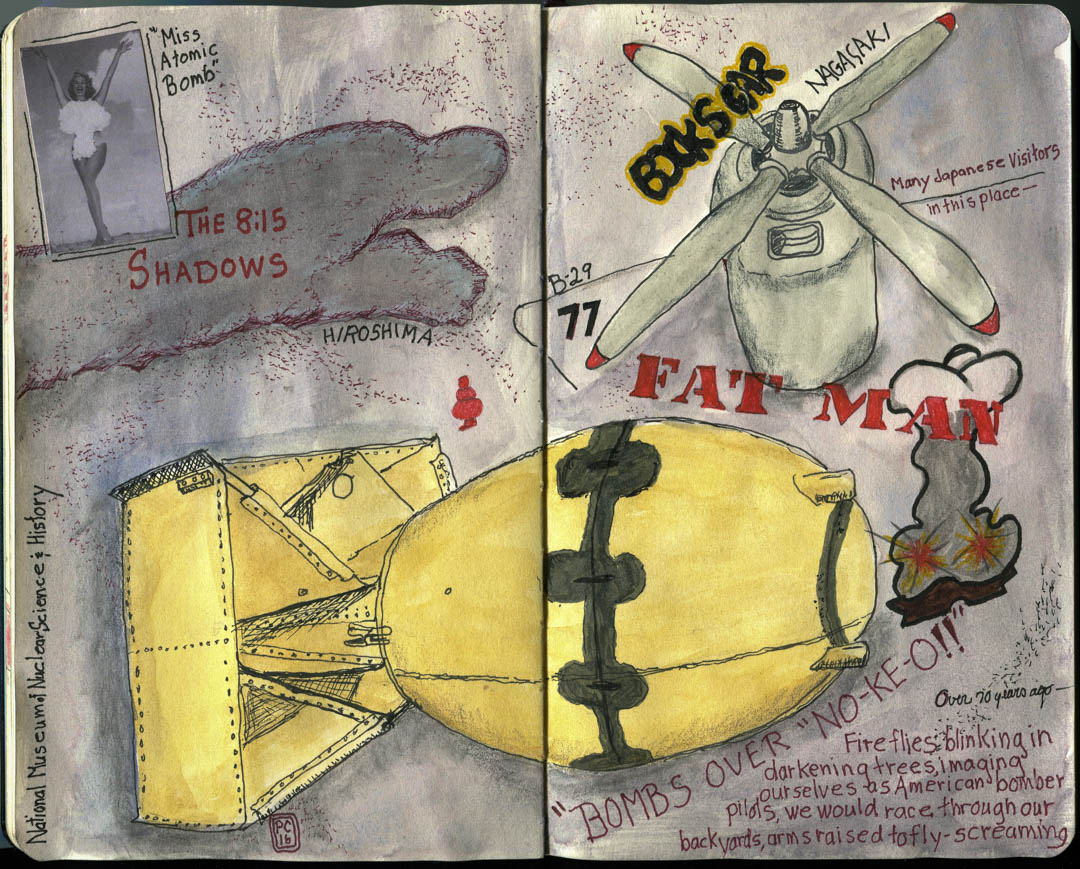 "Miss
Atomic
Bomb"
THE 8:15
SHADOWS
HIROSHIMA
National Museum of Nuclear Science & History
PC
16
BOCKS CAR
NAGASAKI
Many Japanese Visitors
in this place—
B-29
77
FAT MAN
"BOMBS OVER "NO-KE-O!!"
Over 70 years ago—
Fireflies blinking in
darkening trees, imaging
ourselves as American bomber
pilots, we would race through our
backyards, arms raised to fly-screaming